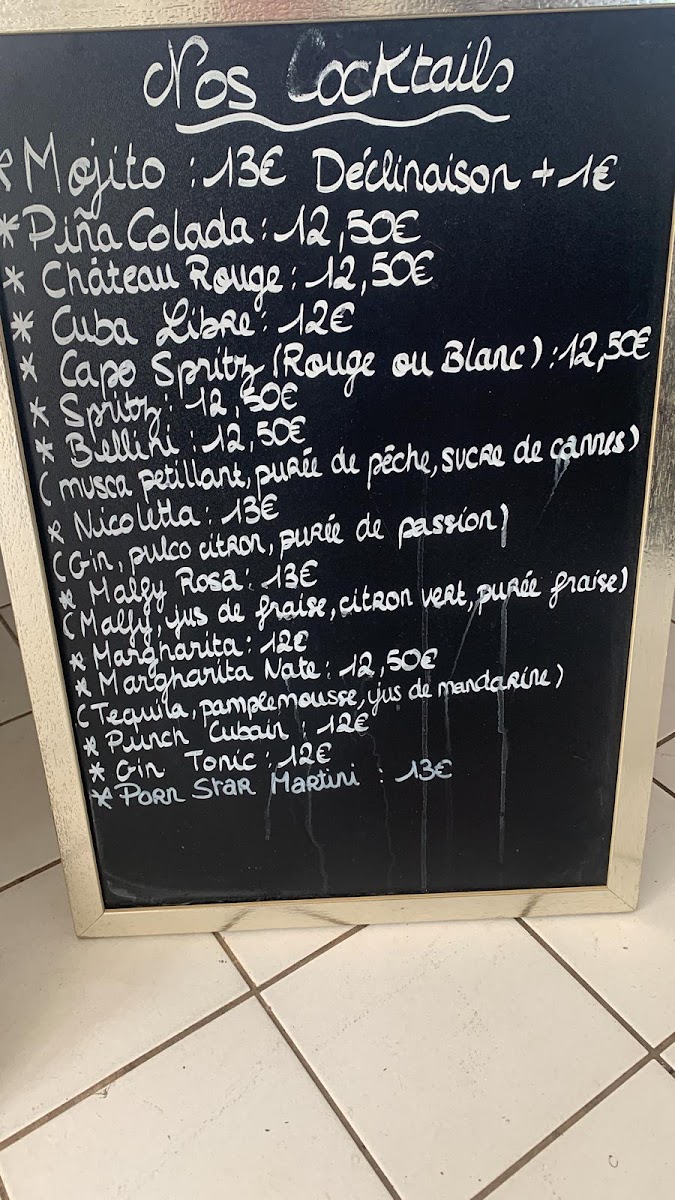 Nos Cocktails
* Mojito : 13€ Déclinaison + 1€
* Piña Colada : 12,50€
* Château Rouge : 12,50€
* Cuba Libre : 12€
* Capo Spritz (Rouge ou Blanc) : 12,50€
* Spritz : 12,50€
* Bellini : 12,50€
(musca petillant, purée de pêche, sucre de cannes)
* Nicoletta : 13€
(Gin, pulco citron, purée de passion)
* Malfy Rosa : 13€
(Malfy, jus de fraise, citron vert, purée fraise)
* Margharita : 12€
* Margharita Nate : 12,50€
(Tequila, pamplemousse, jus de mandarine)
* Punch Cubain : 12€
* Gin Tonic : 12€
* Porn Star Martini : 13€